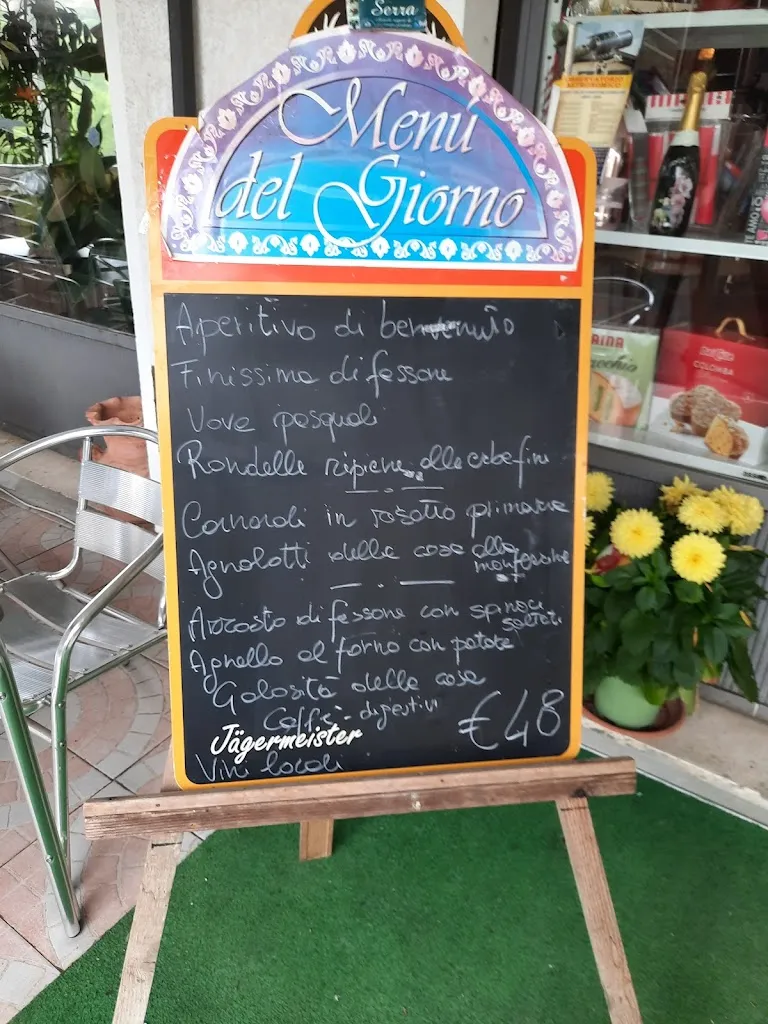 Serra
Menú
del Giorno
Aperitivo di benvenuto
Finissima di fassone
Uova pasquali
Rondelle ripiene alle erbe fini
Carnaroli in risotto primavera
Agnolotti della casa alla
monferrina
Arrosto di fassone con spinaci
saltati
Agnello al forno con patate
Golosità della casa
Caffè digestivi
€48
Jägermeister
Vini locali
OSSERVATORIO
ASTRONOMICO
COLOMBA